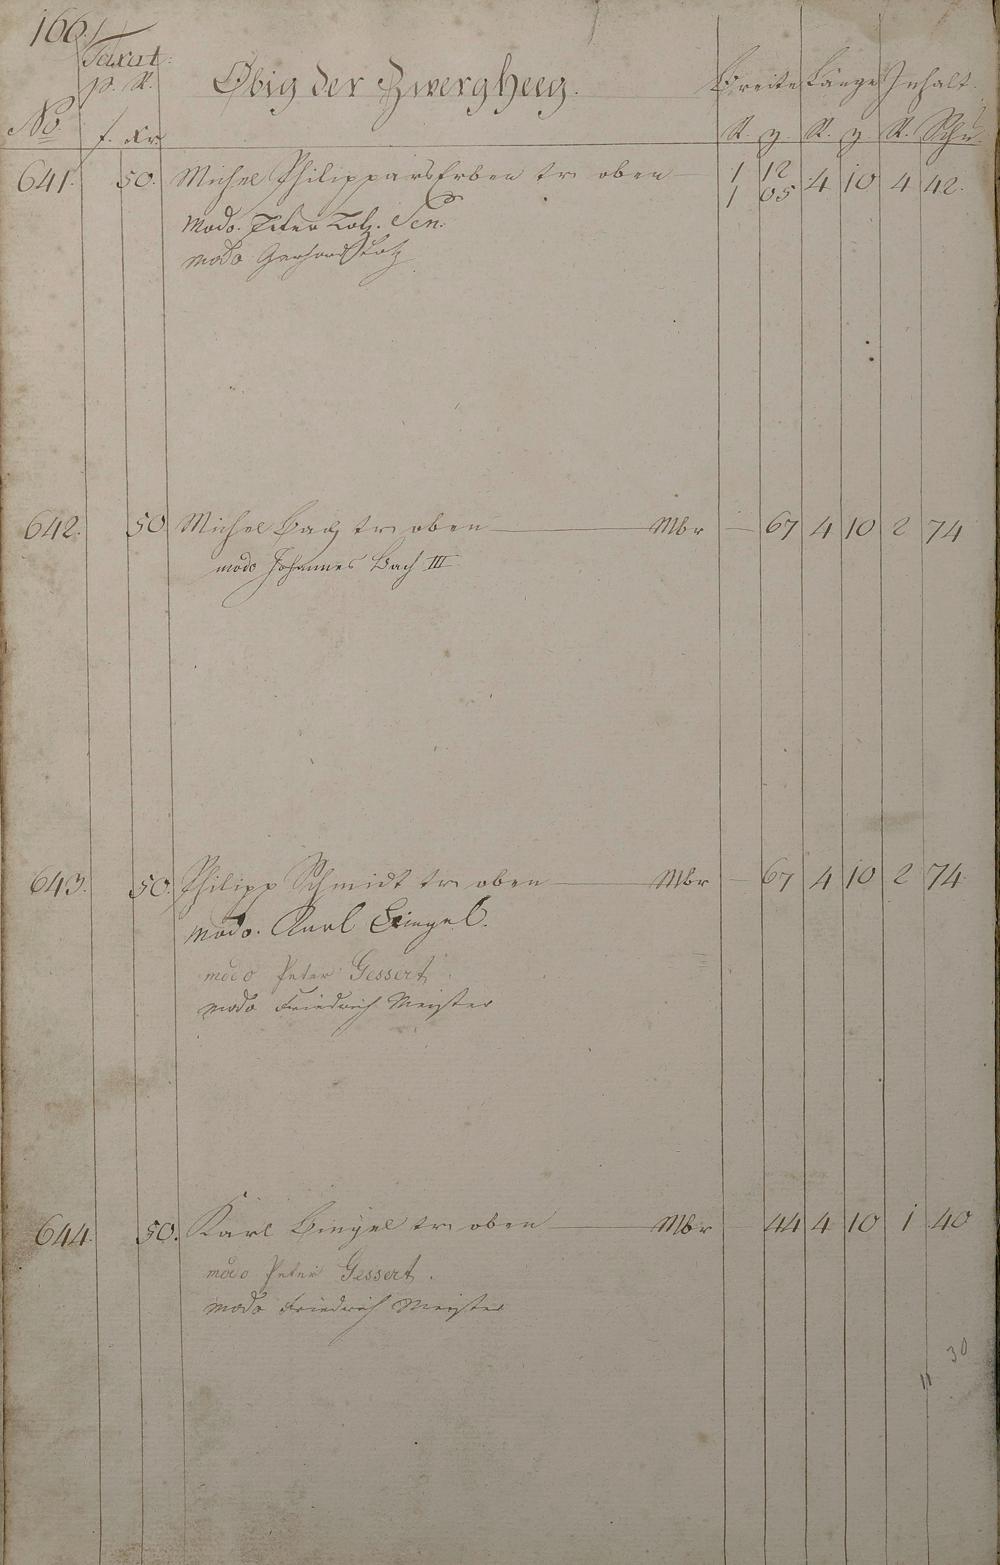 166.
Taxat:
p. R. Obig der Zwergheeg. Breite Länge Inhalt
No f. Xr R. g. R. g. R. Schu
641. 50. Michel Philippars Erben tr oben 1 12 4 10 4 42.
1 05
modo. Peter Lotz. Sen.
modo Gerhard Lotz
642. 50 Michel Bach tr oben Mbr — 67 4 10 2 74
modo Johannes Bach III
643. 50. Philipp Schmidt tr oben Mbr — 67 4 10 2 74
modo. Karl Bingel.
modo Peter Gessert.
modo Friedrich Meister
644. 50. Karl Bingel tr oben Mbr 44 4 10 1 40
modo Peter Gessert.
modo Friedrich Meister
11 30